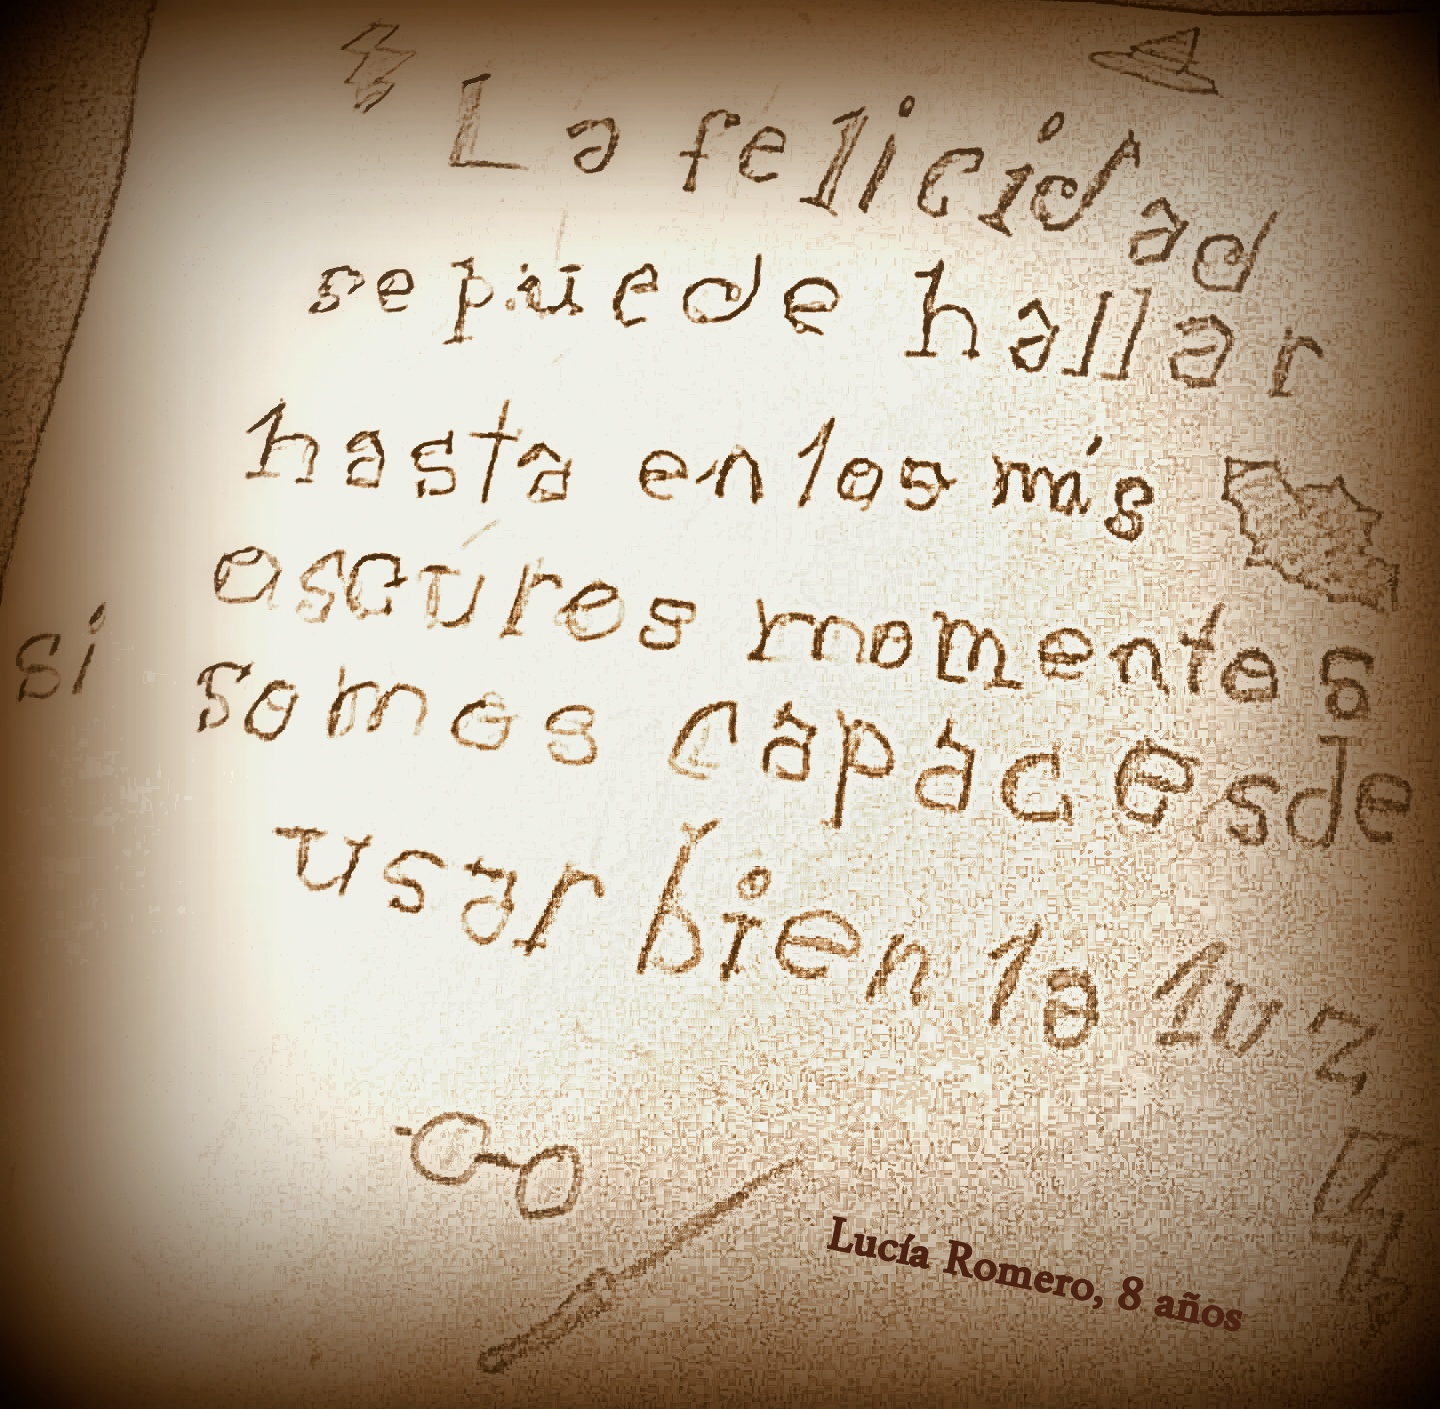 La felicidad
se puede hallar
hasta en los más
oscuros momentos
si somos capaces de
usar bien la luz
Lucía Romero, 8 años